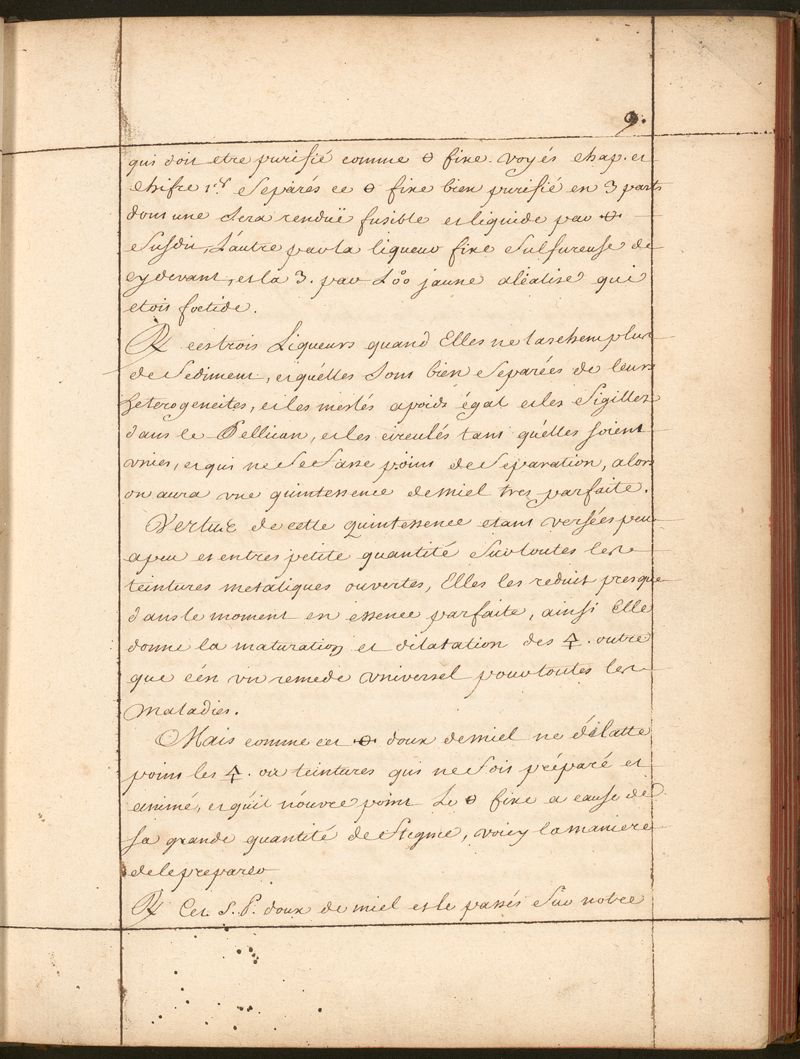 9.
qui doit etre purifié comme ⊖ fixe. voyés chap. et
chifre 1.er Separés ce ⊖ fixe bien purifié en 3 parts
dont une sera renduë fusible et liquide par
Susdit, L'autre par la liqueur fixe Sulfureuse de
cy devant, et la 3. par jaune alcalisé qui
etoit foetide.
℞ ces trois Liqueurs quand Elles ne laschent plus
de Sediment, et qu'elles Sont bien Separées de leurs
heterogeneites, et les meslés apoids égal et les Sigillez
dans le Pellican, et les circulés tant qu'elles soient
vnies, et qui ne Se fasse point de Separation, alors
on aura vne quintessence de miel tres parfaite.
Vertuë de cette quintessence etant versées peu
apeu et entres petite quantité Sur toutes les
teintures metaliques ouvertes, Elles les reduit presque
dans le moment en essence parfaite, ainsi Elle
donne la maturation et dilatation des 🜍. outre
que c'én vn remede vniversel pour toutes les
maladies.
Mais comme cet doux de miel ne dilatte
point les 🜍. ou teintures qui ne Soit préparé et
animé, et qu'il n'ouvre point Le ⊖ fixe a cause de
sa grande quantité de flegme, voicy la maniere
de le preparer
℞ Cet S.P. doux de miel et le passés Sur notre